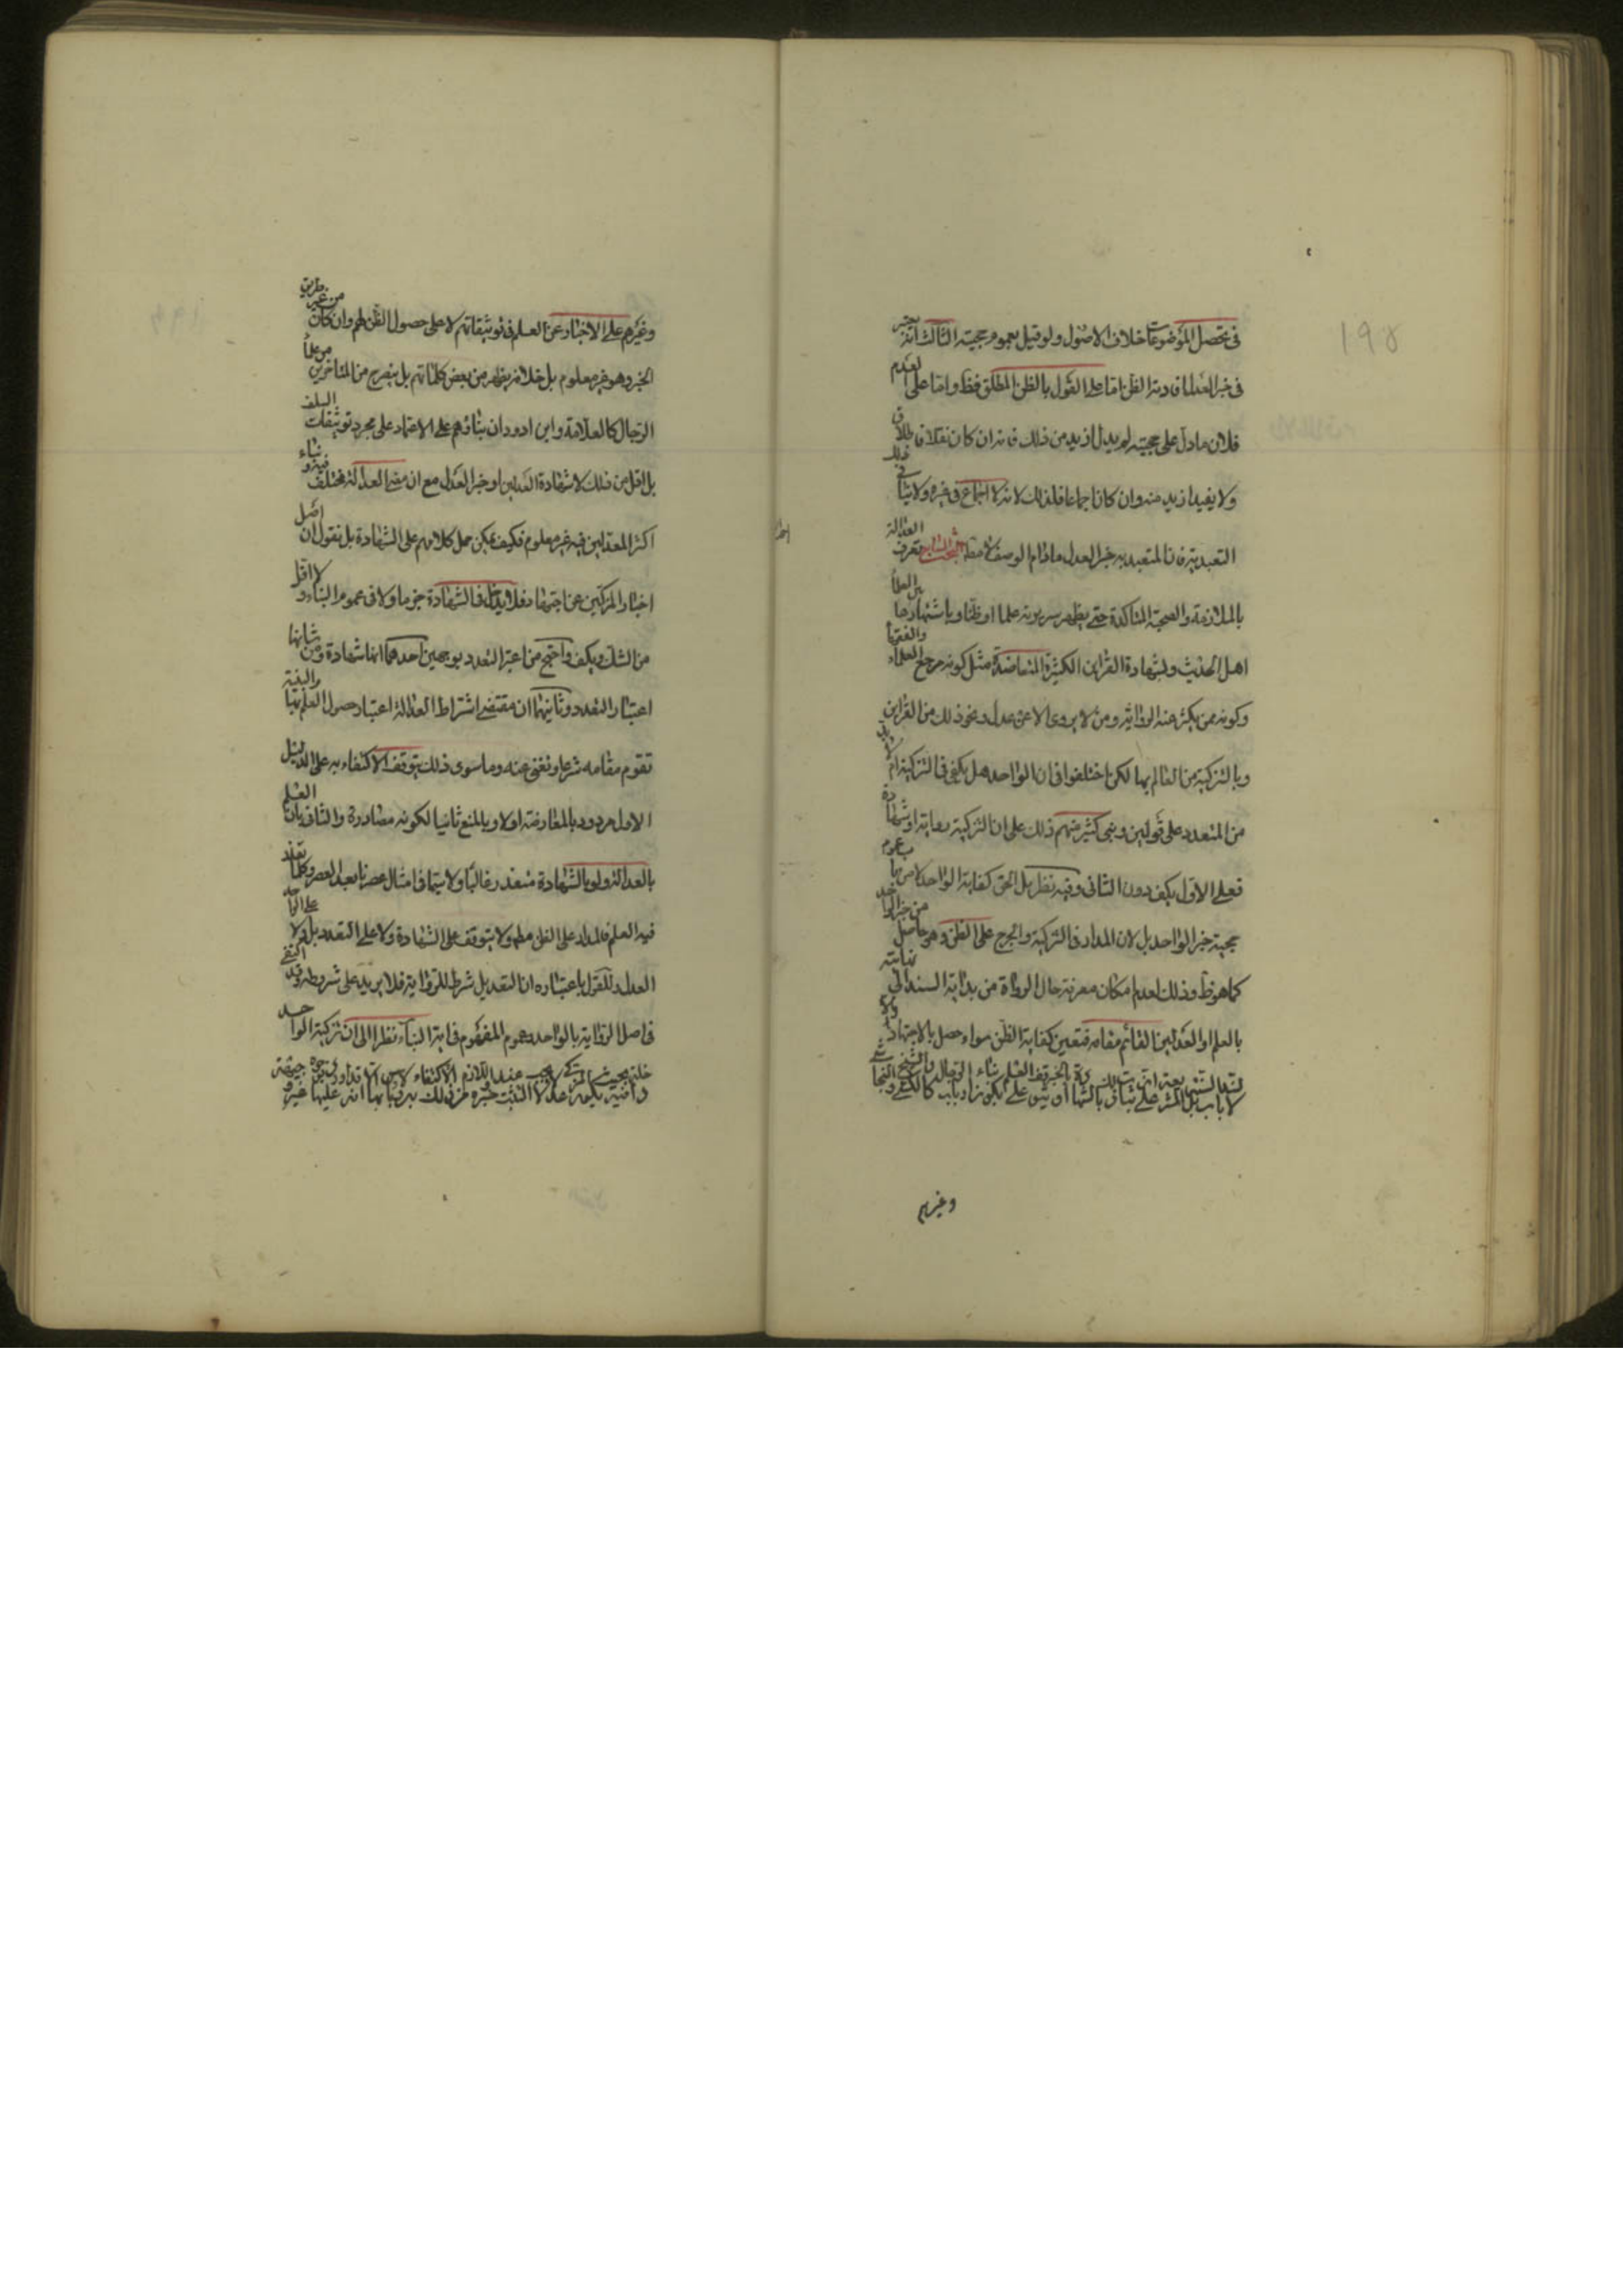 ١٩٨
في تحصل الموضوعات خلاف الاصول ولو قيل بعموم حجيته الثالث انه يعتبر
في خبر العدل افادته الظن اما على القول بالظن المطلق فظ واما على العدم
فلان مادل على حجيته لم يدل ازيد من ذلك فانه ان كان نقلا فاطلاق
ولا يفيد ازيد منه وان كان اجماعا فلذلك لانه لا اجماع في غيره ولا ينافي ذلك
التعبدية فان المتعبد به خبر العدل مادام الوصف تعرف العدالة
بالملازمة والصحبة المتاكدة حتى يظهر سريرته علما او ظنا وباشتهارها بين العلماء
اهل الحديث ولشهادة القراين الكثيرة المتعاضدة مثل كونه مرجع العلماء والفقهاء
وكونه ممن يكثر عنه الرواية ومن لا يروى الا عن عدل ونحو ذلك من القراين
وبالتزكية من العالم بها لكن اختلفوا في ان الواحد هل يكفى في التزكية ام لا بد
من المتعدد على قولين وبنى كثير منهم ذلك على ان التزكية رواية او شهادة
فعلى الاول يكفى دون الثاني وفيه نظر بل الحق كفاية الواحد لا من باب عموم
حجية خبر الواحد بل لان المدار في التزكية والجرح على الظن وهو حاصل من خبر الواحد
كما هو ظ وذلك لعدم امكان معرفة حال الرواة من بداية السند الى نهايته
بالعلم او العدلين القائم مقامه فتعين كفاية الظن سواء حصل بالاجتهاد
وغيرهم
وغيرهم على الاخبار عن العلم في توثيقاتهم لا على حصول الظن لهم وان كان من غير طريق
الخبر وهو غير معلوم بل خلافه يظهر من بعض كلماتهم بل بتصريح من المتاخرين من علماء
الرجال كالعلامة وابن داود ان بناؤهم على الاعتماد على مجرد توثيقات السلف
بل اقل من ذلك لا شهادة العدلين او خبر العدل مع ان معنى العدالة مختلف فيه
اكثر المعدلين فيه غير معلوم فكيف يمكن حمل كلامهم على الشهادة بل نقول ان اصل
اخبار المزكين عن اجتهاد فلا يدخل في الشهادة جزما ولا في عموم البناء ولا اقل
من الشك ويكفى واحتج من اعتبر التعدد بوجهين احدهما انها شهادة ومن شانها
اعتبار التعدد وثانيهما ان مقتضى اشتراط العدالة اعتبار حصول العلم بها والبينة
تقوم مقامه شرعا وتغنى عنه وما سوى ذلك يتوقف الاكتفاء به على الدليل
الاول مردود بالمعارضة اولا وبالمنع ثانيا لكونه مصادرة والثاني بان العلم
بالعدالة ولو بالشهادة متعذر غالبا ولا سيما في امثال عصرنا بعد العصر وكلما تعذر
فيه العلم فالمدار على الظن مطم ولا يتوقف على الشهادة ولا على التعدد
العدل وللقول باعتباره ان التعديل شرط للرواية فلا يزيد على شروطه وقد اكتفى
في اصل الرواية بالواحد وعموم المفهوم في اية النباء نظرا الى ان تزكية الواحد